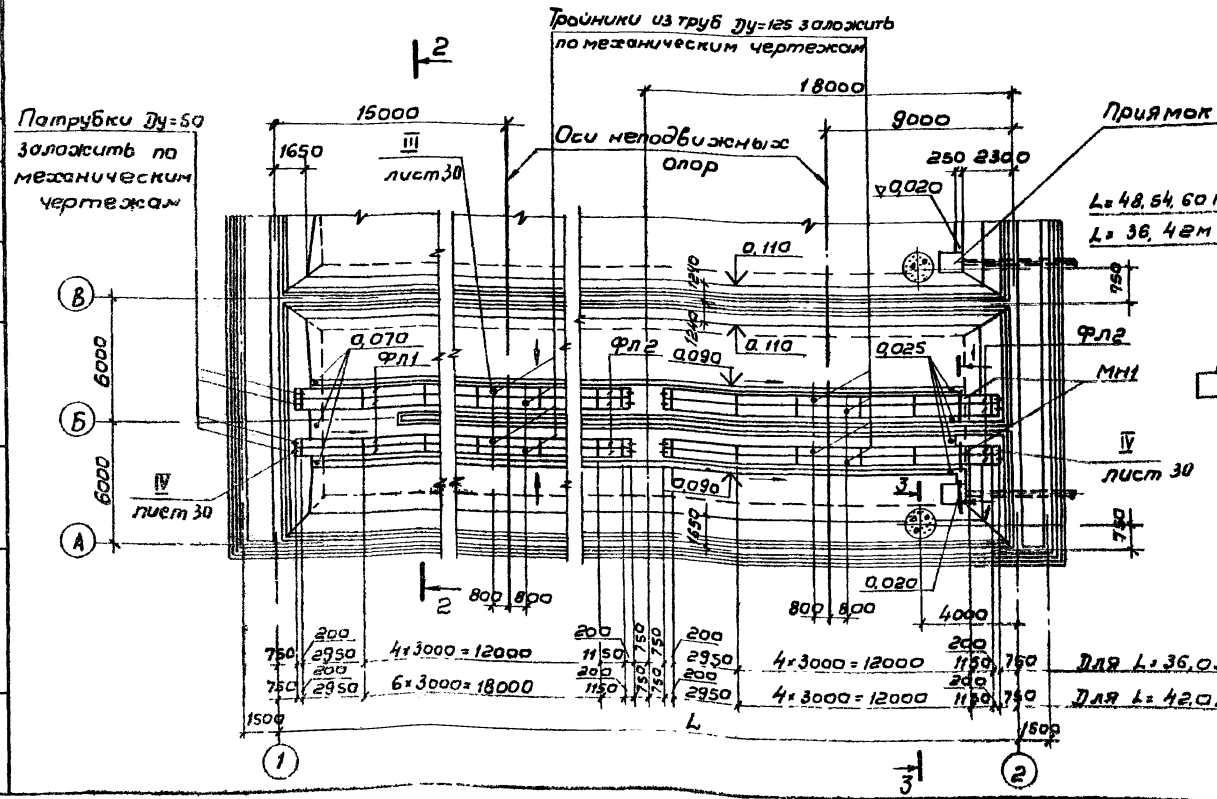 Тройники из труб Ду=125 заложить
по механическим чертежам
2
18000
15000
9000
Приямок
Патрубки Ду=50
заложить по
механическим
чертежам
1650
III
лист 30
Оси неподвижных
опор
250 2300
0,020
L= 48, 54, 60
L= 36, 42м
0,110
1240
750
В
1240
0,110
0,070
Фл1
Фл2
0,090
0,025
Фл2
МН1
6000
Б
6000
IV
лист 30
IV
лист 30
0,090
3
А
1650
750
0,020
2
800 800
800 800
4000
750
200
2950
4×3000=12000
200
1150
750
750
200
2950
4×3000=12000
200
1150
750
Для L=36,0
750
200
2950
6×3000=18000
200
1150
750
750
200
2950
4×3000=12000
200
1150
750
Для L=42,0
1500
L
1500
1
2
3